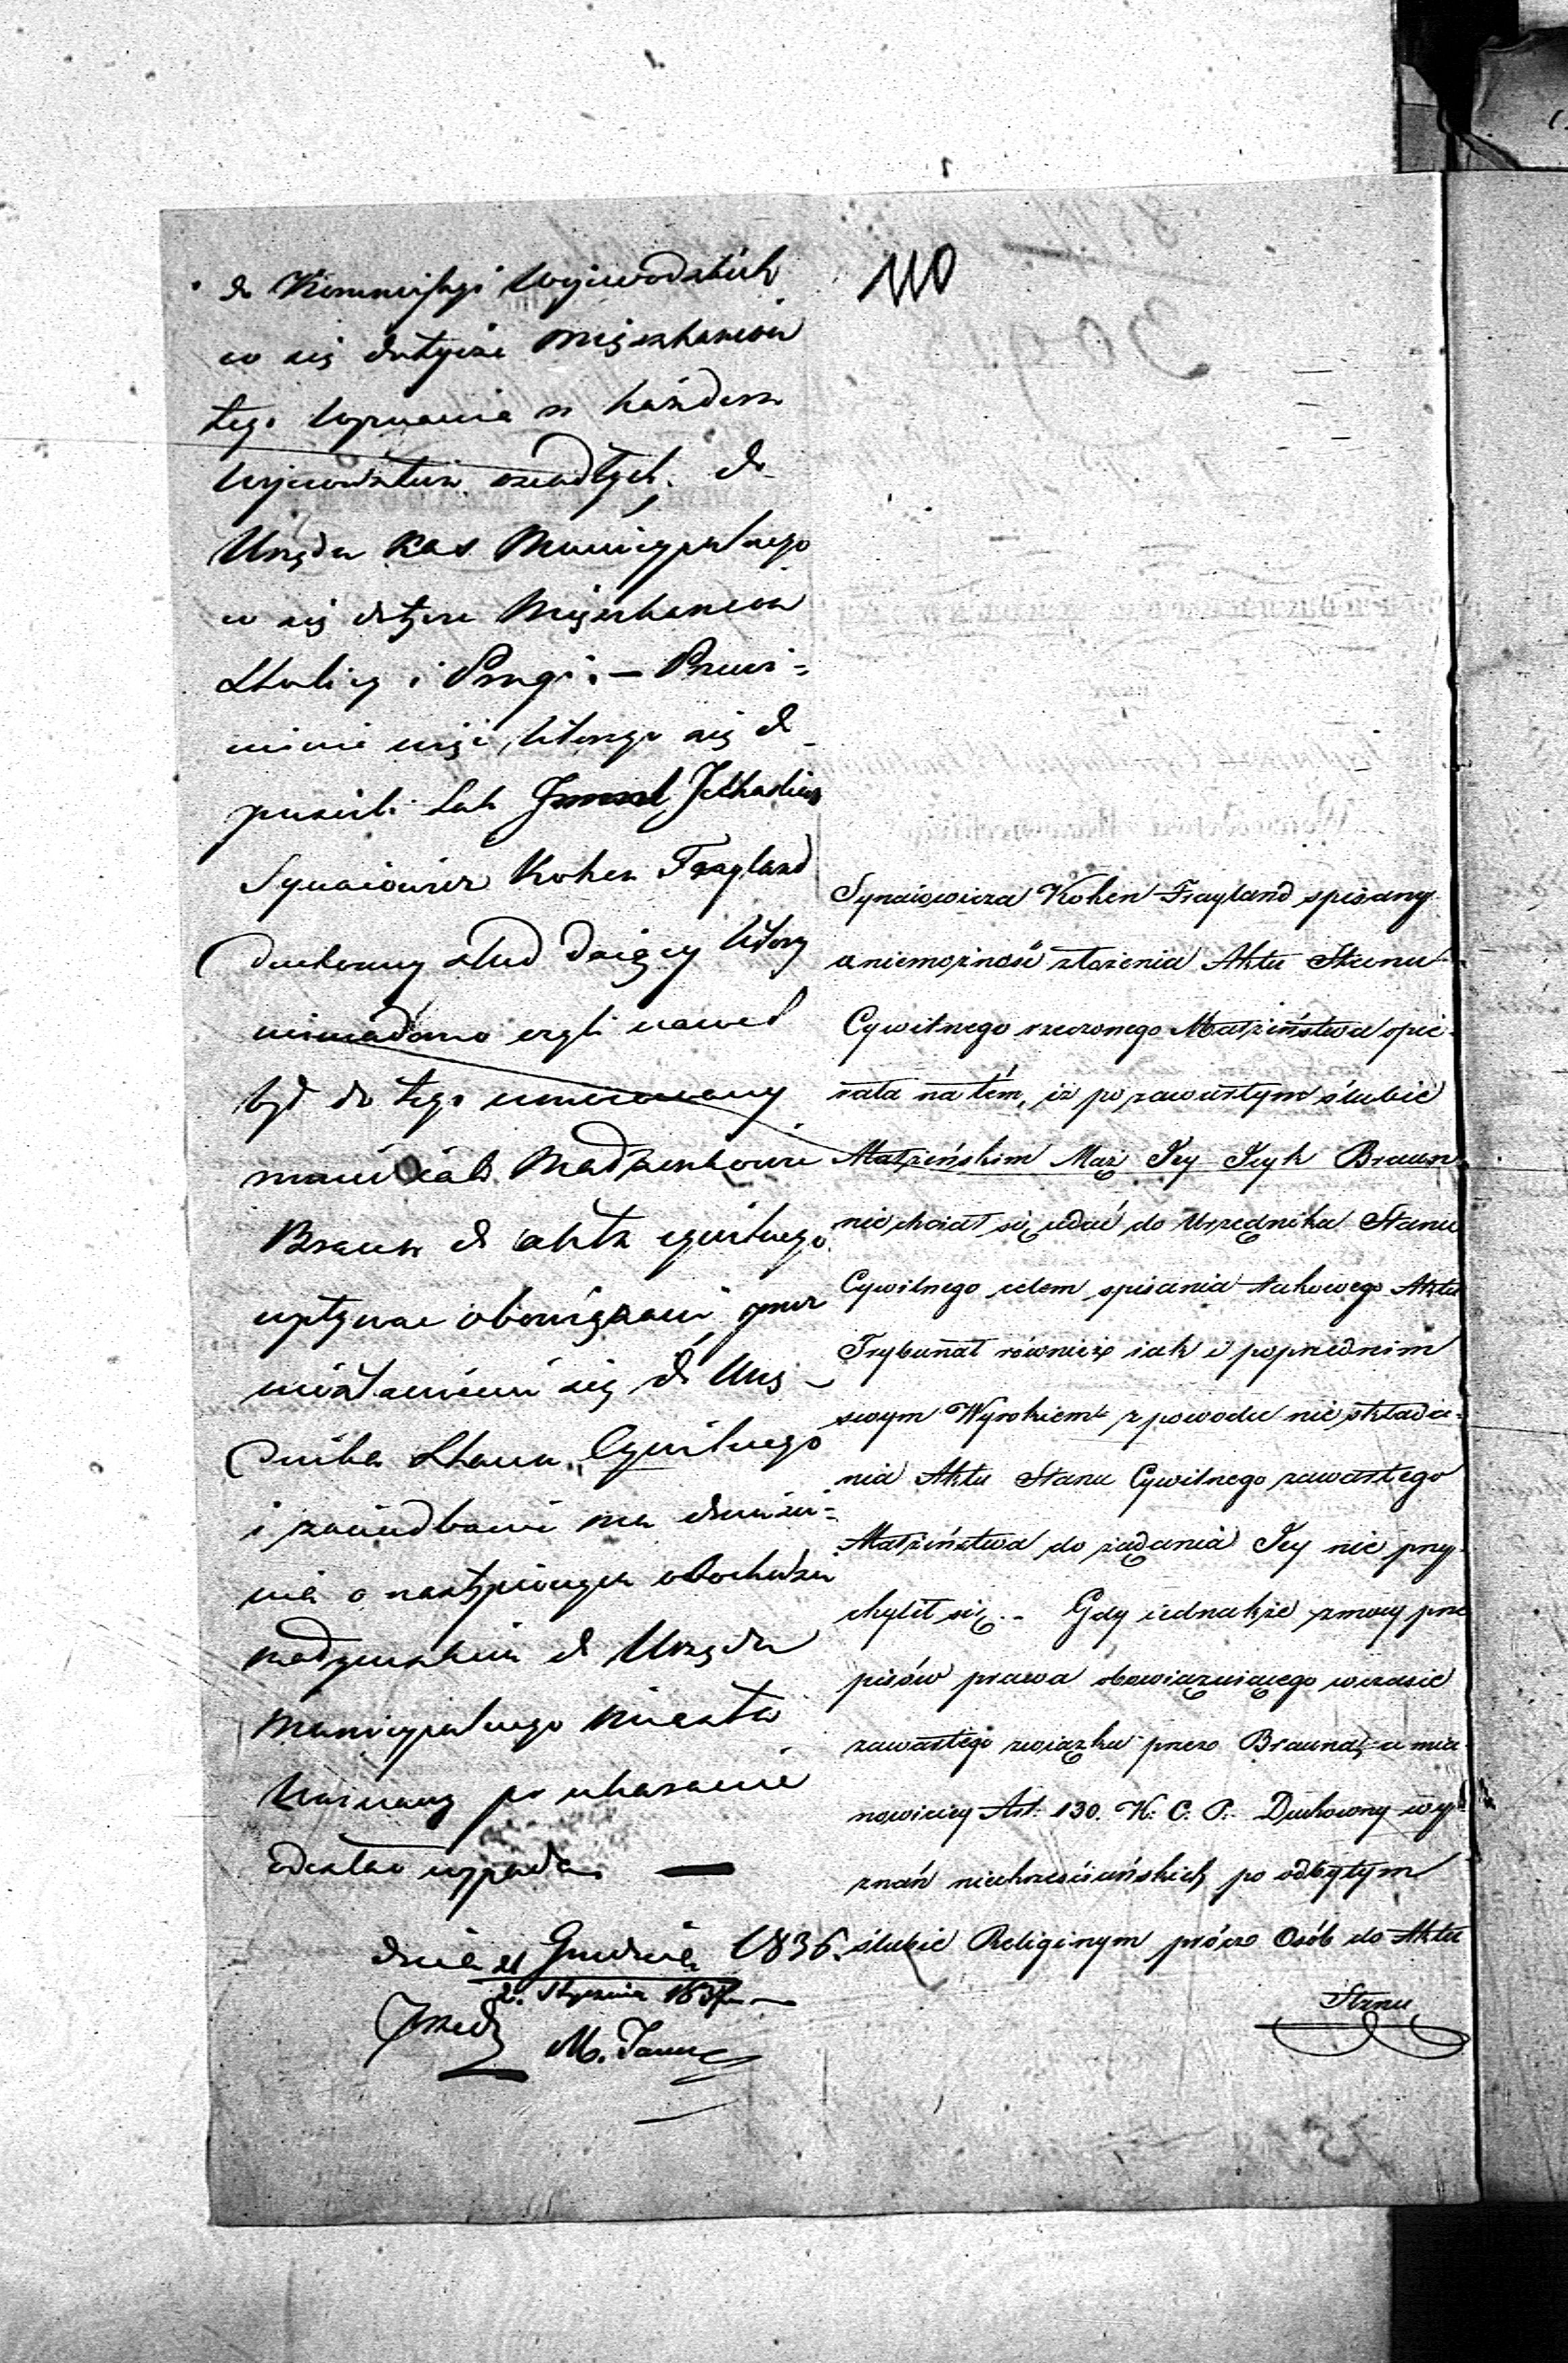 110
do Kommissyi Wojewodzkich
co się dotycze mięszkancow
tego wyznania w każdem
Wojewodztwie osiadłych, do
Urzędu Municypalnego
co się dotycze Mięszkancow
Stolicy i Pragi. — Przewi=
nienie więc, którego się do
puścił tak Jzrael
Synaiowicz Kohen Frayland
Duchowny ślub daiący który
niewiadomo czyli nawet
był do tego
Małżonkowie
Braun do aktu cywilnego
wpływać obowiązani przez
niestawienie się do Urzę-
dnika Stanu Cywilnego
i zaniedbanie mu doniesie=
nia o nastąpionym obchodzie
małżeńskim do Urzędu
Municypalnego Miasta
Warszawy po ukaranie
odesłać wypada. —
dnia 21 Grudnia 1836.
2. Stycznia 1837
M.
Synaiowicza Kohen Frayland spisany
a niemożność złożenia Aktu Stanu
Cywilnego rzeczonego Małżeństwa opie-
rała na tém, iż po zawartym ślubie
Małżeńskim Mąż Jey Icyk Braun
nie chciał się udać do Urzędnika Stanu
Cywilnego celem spisania takowego Aktu
Trybunał również iak i poprzednim
swym Wyrokiem z powodu nie składa-
nia Aktu Stanu Cywilnego zawartego
Małżeństwa do żądania Jey nie przy-
chylił się.. Gdy iednakże z mocy prze
pisów prawa obowiązuiącego w czasie
zawartego związku przez Brauna, a mia-
nowiciey Art: 130. K. C. P. Duchowny wy-
znań niechrześciańskich po odbytym
ślubie Religinym prócz Osób do Aktu
Stanu